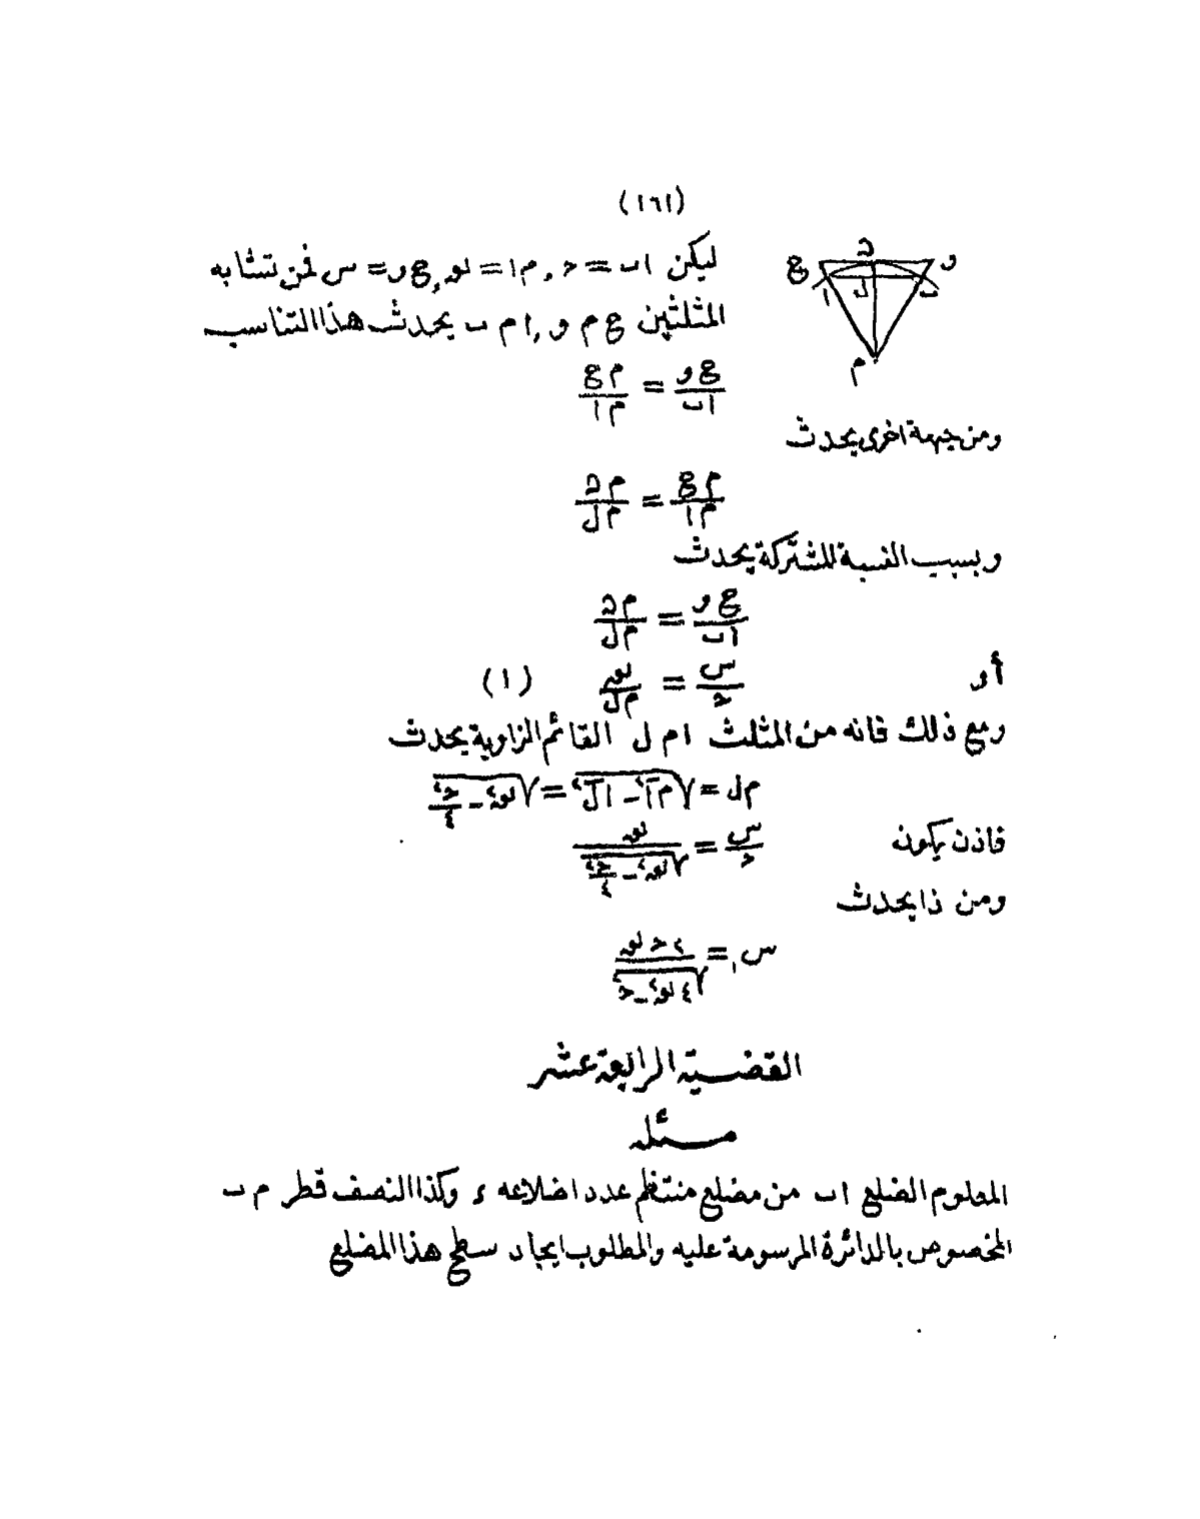 (١٦١)
ليكن اب = ح , م ا = نه , ع و = س فمن تشابه
المثلثين ع م و , ا م ب يحدث هذا التناسب
ع و / اب = م ع / م ا
ومن جهة اخرى يحدث
م ع / م ا = م د / م ل
وبسبب النسبة المشتركة يحدث
ع و / اب = م د / م ل
أو س / ح = نه / م ل (١)
ومع ذلك فانه من المثلث ا م ل القائم الزاوية يحدث
م ل = √(م ا٢ – ا ل٢) = √(نه٢ – ح٢/٤)
فاذن يكون س / ح = نه / √(نه٢ – ح٢/٤)
ومن ذا يحدث
س = ٢ ح نه / √(٤ نه٢ – ح٢)
القضية الرابعة عشر
مسئله
المعلوم الضلع اب من مضلع منتظم عدد اضلاعه ء وكذا النصف قطر م ب
المخصوص بالدائرة المرسومة عليه والمطلوب ايجاد سطح هذا المضلع